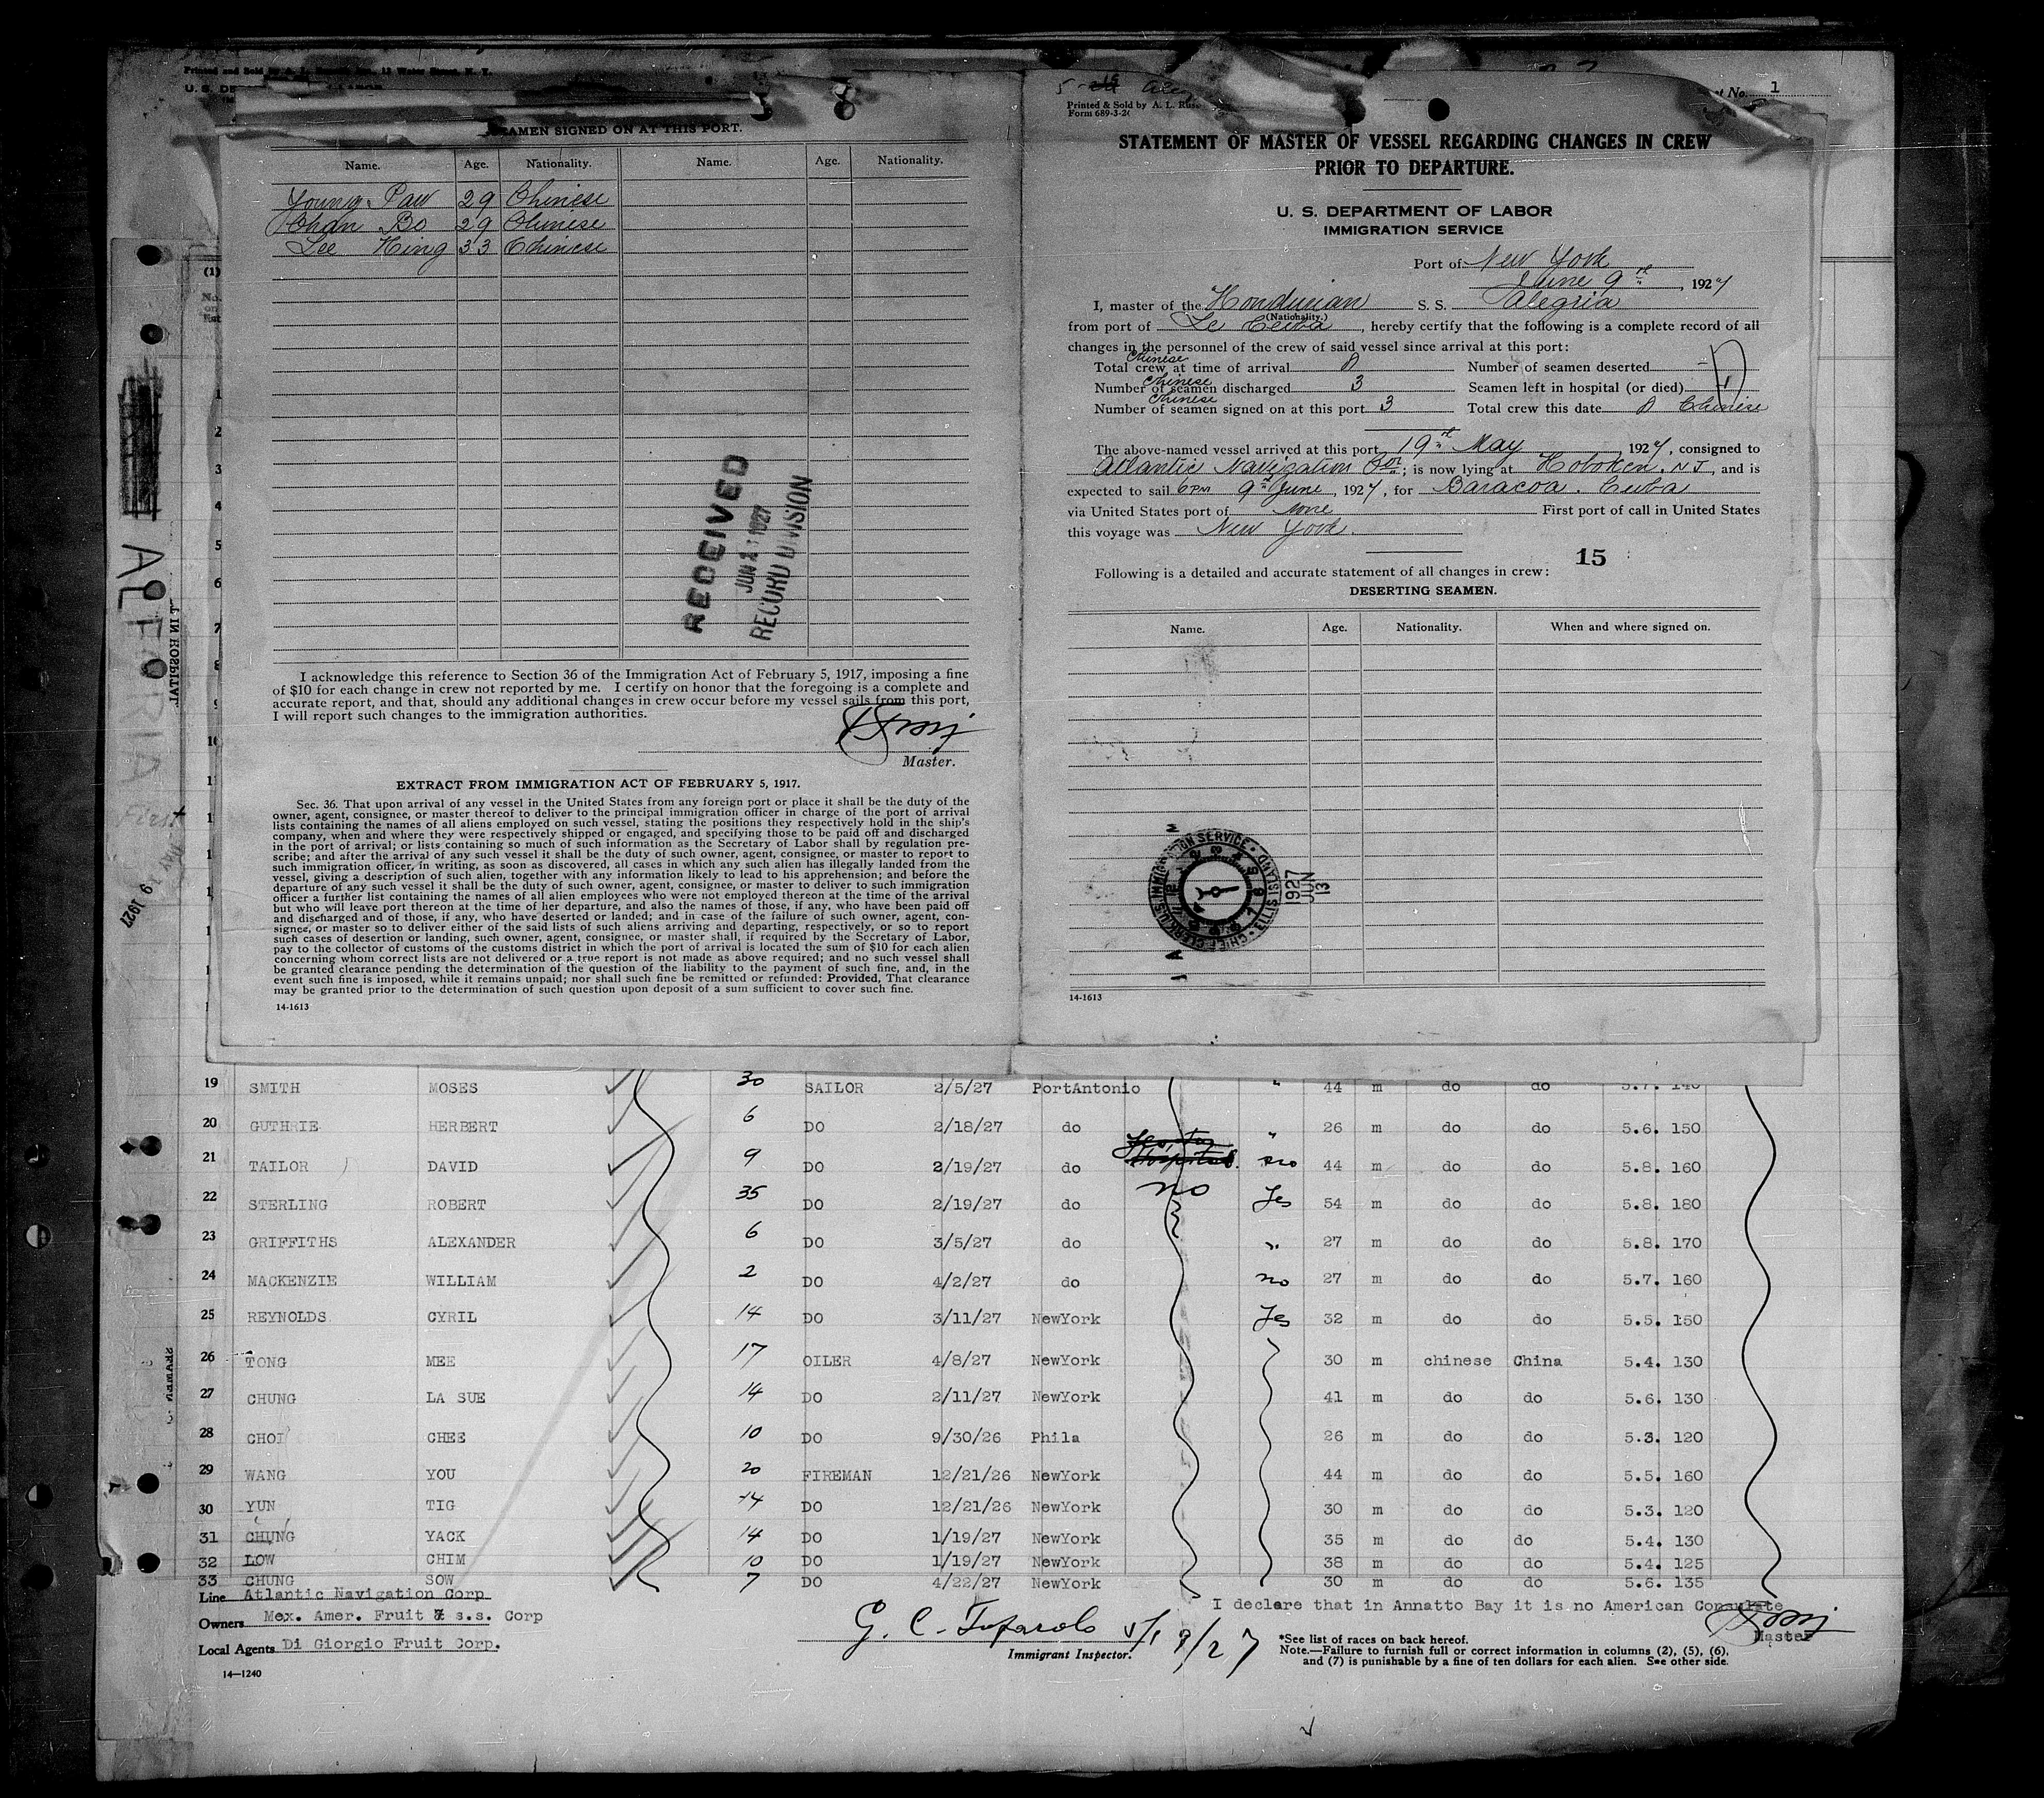 SEAMEN SIGNED ON AT THIS PORT.
Name. Age. Nationality. Name. Age. Nationality.
Young Paw 29 Chinese
Chan Bo 29 Chinese
Lee King 33 Chinese
RECEIVED
JUN 1927
RECORD DIVISION
I acknowledge this reference to Section 36 of the Immigration Act of February 5, 1917, imposing a fine
of $10 for each change in crew not reported by me. I certify on honor that the foregoing is a complete and
accurate report, and that, should any additional changes in crew occur before my vessel sails from this port,
I will report such changes to the immigration authorities.
Master.
EXTRACT FROM IMMIGRATION ACT OF FEBRUARY 5, 1917.
Sec. 36. That upon arrival of any vessel in the United States from any foreign port or place it shall be the duty of the
owner, agent, consignee, or master thereof to deliver to the principal immigration officer in charge of the port of arrival
lists containing the names of all aliens employed on such vessel, stating the positions they respectively hold in the ship's
company, when and where they were respectively shipped or engaged, and specifying those to be paid off and discharged
in the port of arrival; or lists containing so much of such information as the Secretary of Labor shall by regulation pre-
scribe; and after the arrival of any such vessel it shall be the duty of such owner, agent, consignee, or master to report to
such immigration officer, in writing, as soon as discovered, all cases in which any such alien has illegally landed from the
vessel, giving a description of such alien, together with any information likely to lead to his apprehension; and before the
departure of any such vessel it shall be the duty of such owner, agent, consignee, or master to deliver to such immigration
officer a further list containing the names of all alien employees who were not employed thereon at the time of the arrival
but who will leave port thereon at the time of her departure, and also the names of those, if any, who have been paid off
and discharged and of those, if any, who have deserted or landed; and in case of the failure of such owner, agent, con-
signee, or master so to deliver either of the said lists of such aliens arriving and departing, respectively, or so to report
such cases of desertion or landing, such owner, agent, consignee, or master shall, if required by the Secretary of Labor,
pay to the collector of customs of the customs district in which the port of arrival is located the sum of $10 for each alien
concerning whom correct lists are not delivered or a true report is not made as above required; and no such vessel shall
be granted clearance pending the determination of the question of the liability to the payment of such fine, and, in the
event such fine is imposed, while it remains unpaid; nor shall such fine be remitted or refunded: Provided, That clearance
may be granted prior to the determination of such question upon deposit of a sum sufficient to cover such fine.
14-1613
No. 1
Printed & Sold by A. L.
Form 689-3-2
STATEMENT OF MASTER OF VESSEL REGARDING CHANGES IN CREW
PRIOR TO DEPARTURE.
U. S. DEPARTMENT OF LABOR
IMMIGRATION SERVICE
Port of New York
June 9th, 1927
I, master of the Hondurian S. S. Alegria
(Nationality.)
from port of Le Ceiba, hereby certify that the following is a complete record of all
changes in the personnel of the crew of said vessel since arrival at this port:
Chinese
Total crew at time of arrival Number of seamen deserted -
Chinese
Number of seamen discharged 3 Seamen left in hospital (or died)
Chinese
Number of seamen signed on at this port 3 Total crew this date Chinese
The above-named vessel arrived at this port 19th May, 1927, consigned to
Atlantic Navigation; is now lying at Hoboken. NJ, and is
expected to sail 6 PM 9th June, 1927, for Baracoa. Cuba
via United States port of none First port of call in United States
this voyage was New York.
15
Following is a detailed and accurate statement of all changes in crew:
DESERTING SEAMEN.
Name. Age. Nationality. When and where signed on.
U.S. IMMIGRATION SERVICE · CHIEF CLERK · ELLIS ISLAND
1927
JUN
13
14-1613
ALEGRIA
First
MAY 19 1927
T IN HOSPITAL
19 SMITH MOSES 30 SAILOR 2/5/27 PortAntonio " 44 m do do 5.7. 140
20 GUTHRIE HERBERT 6 DO 2/18/27 do " 26 m do do 5.6. 150
21 TAILOR DAVID 9 DO 2/19/27 do Hospital. no 44 m do do 5.8. 160
22 STERLING ROBERT 35 DO 2/19/27 do no Yes 54 m do do 5.8. 180
23 GRIFFITHS ALEXANDER 6 DO 3/5/27 do " 27 m do do 5.8. 170
24 MACKENZIE WILLIAM 2 DO 4/2/27 do no 27 m do do 5.7. 160
25 REYNOLDS CYRIL 14 DO 3/11/27 NewYork Yes 32 m do do 5.5. 150
26 TONG MEE 17 OILER 4/8/27 NewYork 30 m chinese China 5.4. 130
27 CHUNG LA SUE 14 DO 2/11/27 NewYork 41 m do do 5.6. 130
28 CHOI CHEE 10 DO 9/30/26 Phila 26 m do do 5.3. 120
29 WANG YOU 20 FIREMAN 12/21/26 NewYork 44 m do do 5.5. 160
30 YUN TIG 14 DO 12/21/26 NewYork 30 m do do 5.3. 120
31 CHUNG YACK 14 DO 1/19/27 NewYork 35 m do do 5.4. 130
32 LOW CHIM 10 DO 1/19/27 NewYork 38 m do do 5.4. 125
33 CHUNG SOW 7 DO 4/22/27 NewYork 30 m do do 5.6. 135
Line Atlantic Navigation Corp
Owners Mex. Amer. Fruit & s.s. Corp
Local Agents Di Giorgio Fruit Corp.
14—1240
I declare that in Annatto Bay it is no American Consulate
G. C. 5/19/27
Immigrant Inspector.
Master
*See list of races on back hereof.
Note.—Failure to furnish full or correct information in columns (2), (5), (6),
and (7) is punishable by a fine of ten dollars for each alien. See other side.